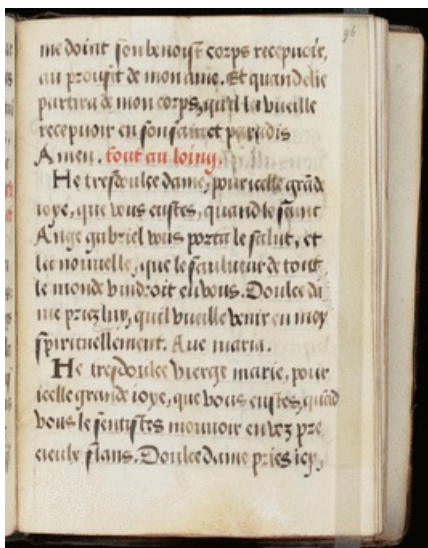 96
me doint son benoist corps recepuoir,
au proufit de mon ame. Et quand elle
partira de mon corps, qu'il la vueille
recepuoir en son sainct paradis
Amen. tout au loing.
He tresdoulce dame, pour icelle grãde
ioye, que vous eustes, quand le saint
Ange gabriel vous porta le salut, et
la nouuelle, que le saulueur de tout
le monde viudroit en vous. Doulce da
me priez luy, quil vueille venir en moy
spirituellement. Aue maria.
He tresdoulce vierge marie, pour
icelle grande ioye, que vous eustes, quãd
vous le sentistes mouuoir en voz pre
cieulx flans. Doulce dame priez